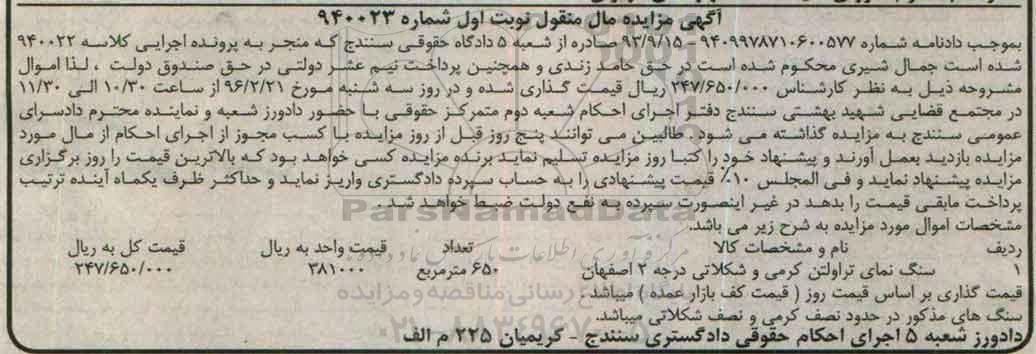 آگهی مزایده مال منقول نوبت اول شماره ۹۴۰۰۲۳
بموجب دادنامه شماره ۹۴۰۹۹۷۸۷۱۰۶۰۰۵۷۷ - ۹۳/۹/۱۵ صادره از شعبه ۵ دادگاه حقوقی سنندج که منجر به پرونده اجرایی کلاسه ۹۴۰۰۲۲
شده است جمال شیری محکوم شده است در حق حامد زندی و همچنین پرداخت نیم عشر دولتی در حق صندوق دولت ، لذا اموال
مشروحه ذیل به نظر کارشناس ۲۴۷/۶۵۰/۰۰۰ ریال قیمت گذاری شده و در روز سه شنبه مورخ ۹۶/۲/۲۱ از ساعت ۱۰/۳۰ الی ۱۱/۳۰
در مجتمع قضایی شهید بهشتی سنندج دفتر اجرای احکام شعبه دوم متمرکز حقوقی با حضور دادورز شعبه و نماینده محترم دادسرای
عمومی سنندج به مزایده گذاشته می شود. طالبین می توانند پنج روز قبل از روز مزایده با کسب مجوز از اجرای احکام از مال مورد
مزایده بازدید بعمل آورند و پیشنهاد خود را کتبا روز مزایده تسلیم نماید برنده مزایده کسی خواهد بود که بالاترین قیمت را روز برگزاری
مزایده پیشنهاد نماید و فی المجلس ۱۰٪ قیمت پیشنهادی را به حساب سپرده دادگستری واریز نماید و حداکثر ظرف یکماه آینده ترتیب
پرداخت مابقی قیمت را بدهد در غیر اینصورت سپرده به نفع دولت ضبط خواهد شد .
ParsNamadData
مشخصات اموال مورد مزایده به شرح زیر می باشد.
مرکز فرآوری اطلاعات پارس نماد داده ها
ردیف نام و مشخصات کالا تعداد قیمت واحد به ریال قیمت کل به ریال
۱ سنگ نمای تراولتن کرمی و شکلاتی درجه ۲ اصفهان ۶۵۰ مترمربع ۳۸۱۰۰۰ ۲۴۷/۶۵۰/۰۰۰
قیمت گذاری بر اساس قیمت روز ( قیمت کف بازار عمده ) میباشد.
پایگاه اطلاع رسانی مناقصه و مزایده
سنگ های مذکور در حدود نصف کرمی و نصف شکلاتی میباشد.
دادورز شعبه ۵ اجرای احکام حقوقی دادگستری سنندج - کریمیان ۲۲۵ م الف